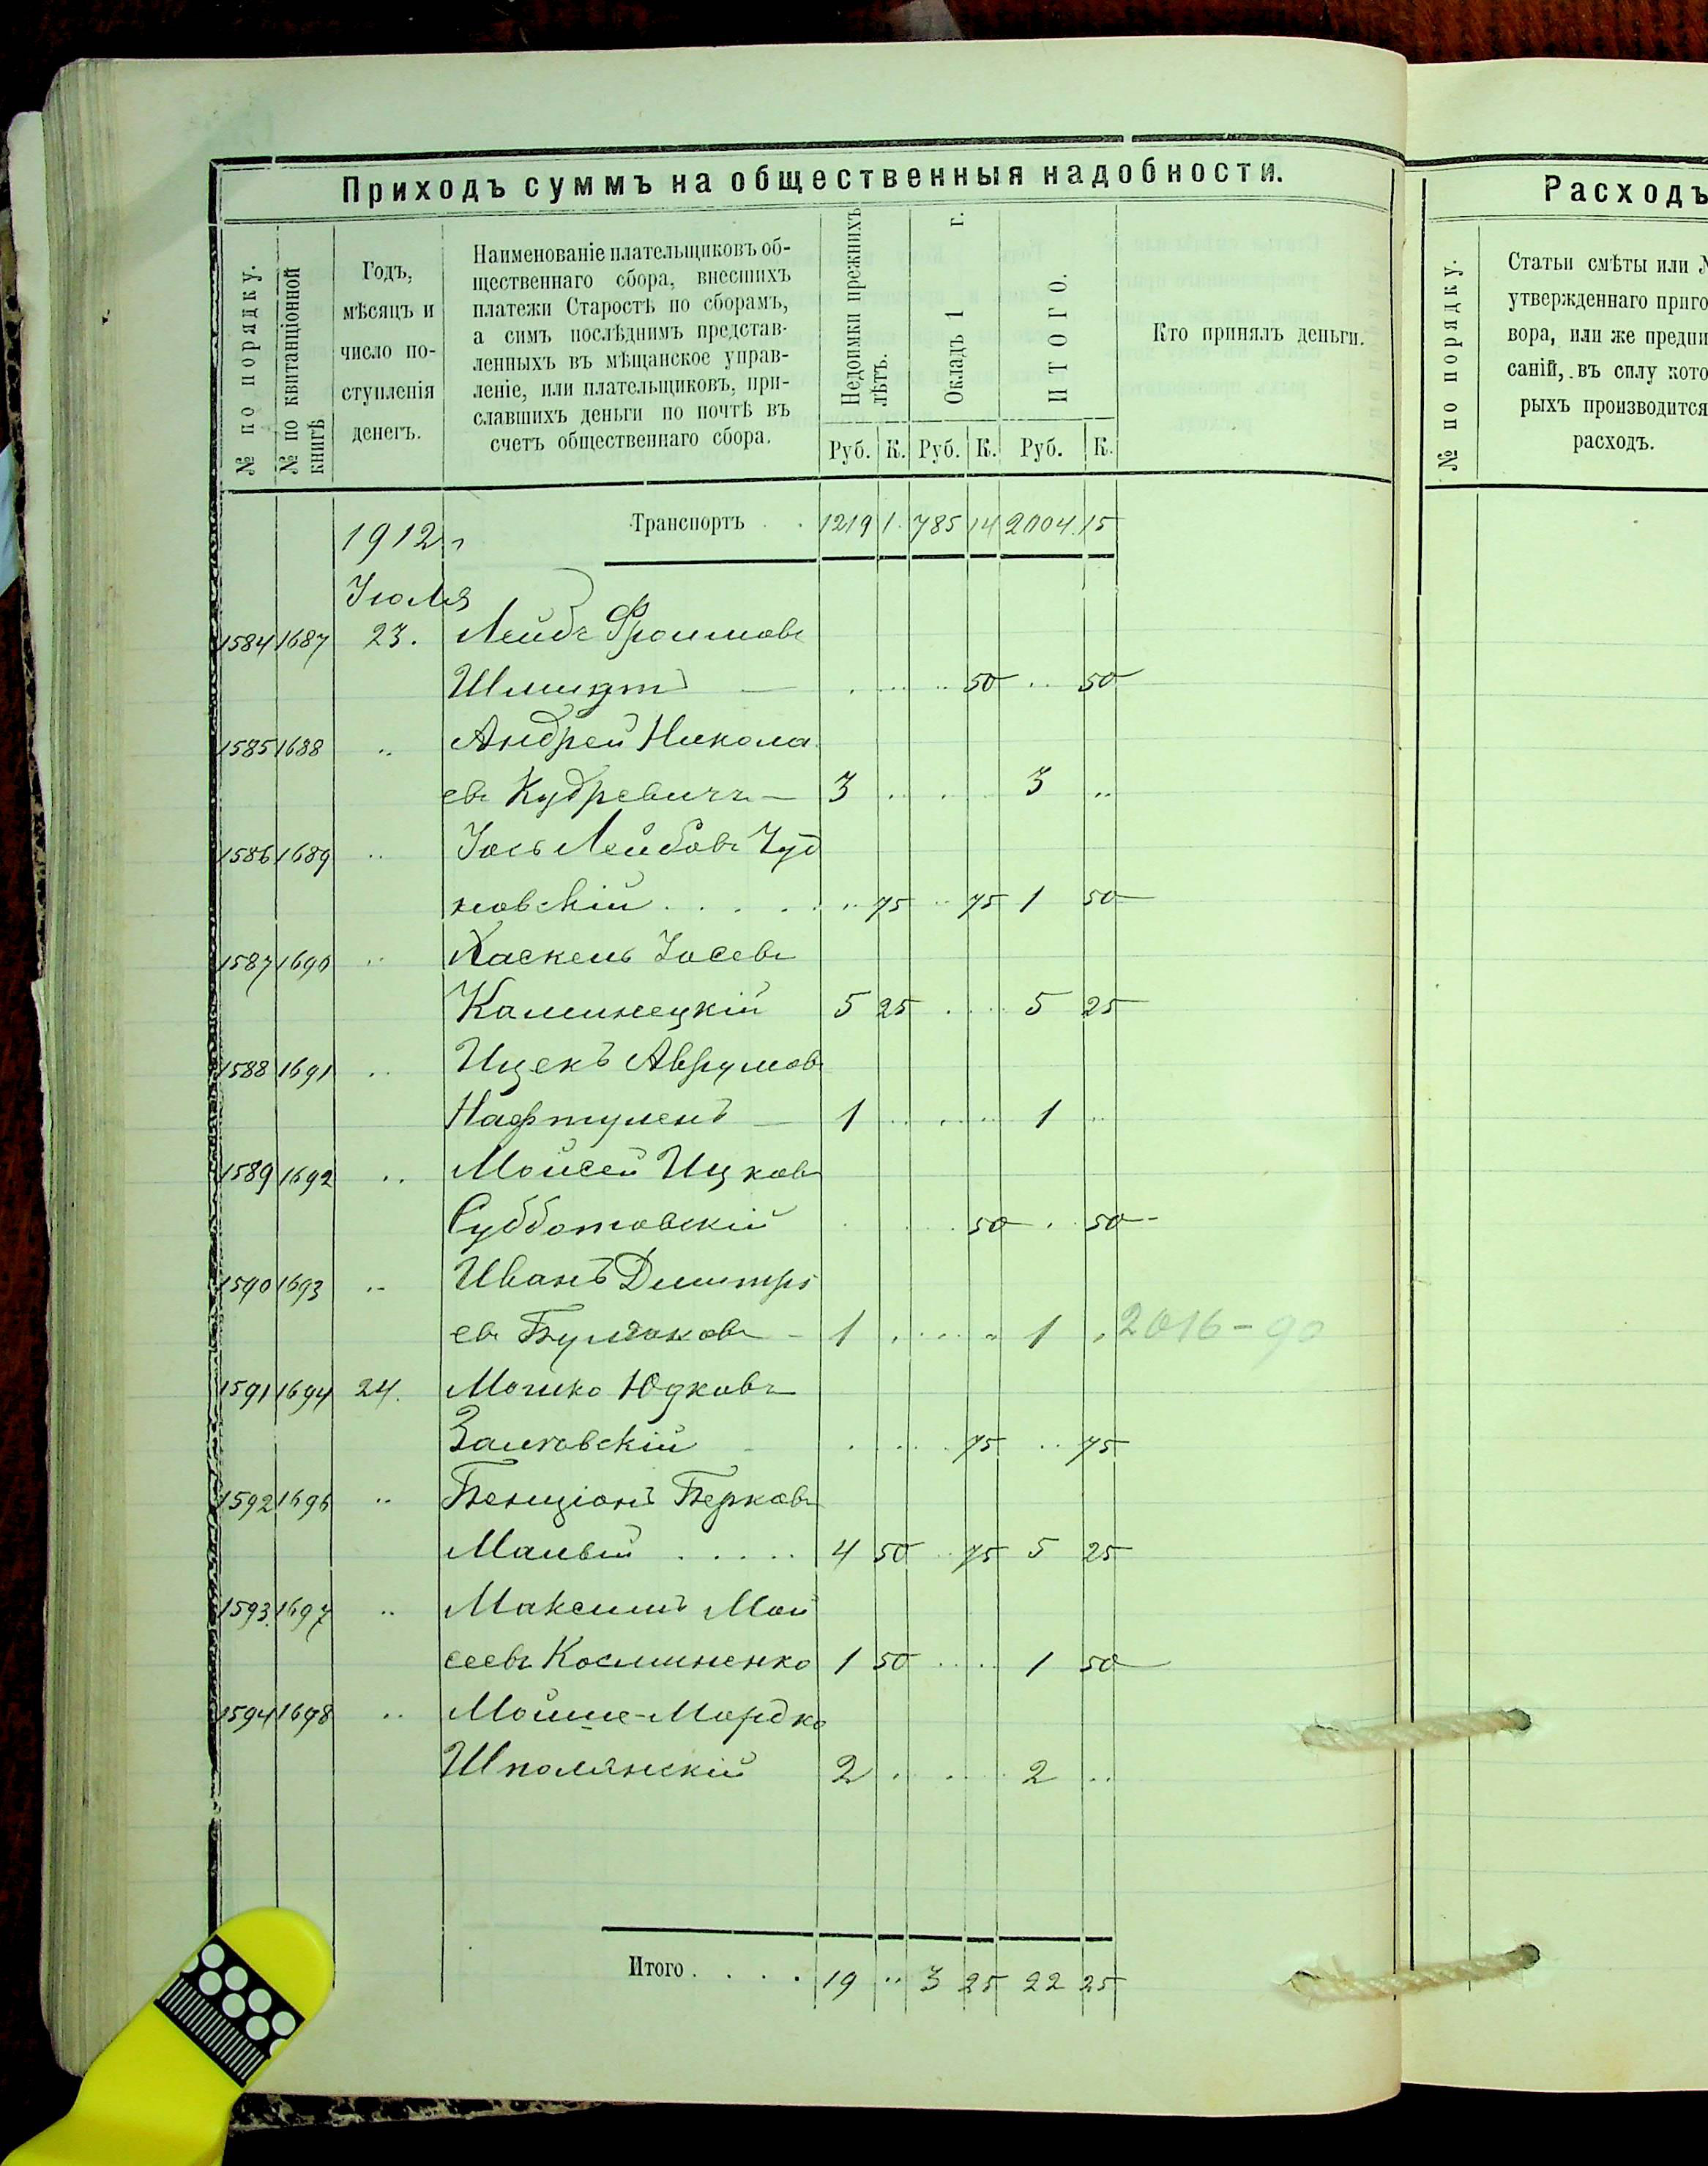 Приходъ суммъ на общественныя надобности.
№ по порядку.
№ по квитанціонной книгѣ
Годъ, мѣсяцъ и число поступленія денегъ.
Наименованіе плательщиковъ об-
щественнаго сбора, внесшихъ
платежи Старостѣ по сборамъ,
а симъ послѣднимъ представ-
ленныхъ въ мѣщанское управ-
леніе, или плательщиковъ, при-
славшихъ деньги по почтѣ въ
счетъ общественнаго сбора.
Недоимки прежнихъ лѣтъ.
Окладъ 1 г.
ИТОГО.
Кто принялъ деньги.
Руб. К. Руб. К. Руб. К.
1912 г Транспортъ . . 1219 1 785 14 2004 15
Іюля
1584 1687 23. Лейбъ Фроимовъ
Шмидтъ — 50 50
1585 1688 „ Андрей Никола
евъ Кудревичъ — 3 3 „
1586 1689 „ Іось Лейбовъ Чуд
новскій . . . . „ 75 „ 75 1 50
1587 1690 „ Хаскель Іосевъ
Каминецкій 5 25 5 25
1588 1691 „ Ицекъ Аврумовъ
Нафтуленъ — 1 1 „
1589 1692 „ Мойсей Ицковъ
Субботовскій 50 50
1590 1693 „ Иванъ Дмитрі
евъ Булгаковъ — 1 1 „ 2016-90
1591 1694 24. Мошко Юдковъ
Залковскій 75 75
1592 1696 „ Бенціонъ Берковъ
Малый . . . . . 4 50 „ 75 5 25
1593 1697 „ Максимъ Мои
сеевъ Косминенко 1 50 1 50
1594 1698 „ Мойше-Мордко
Шполянскій 2 2 „
Итого . . . . 19 „ 3 25 22 25
Расходъ
№ по порядку.
Статьи смѣты или №
утвержденнаго приго
вора, или же предпи
саній, въ силу кото
рыхъ производится
расходъ.